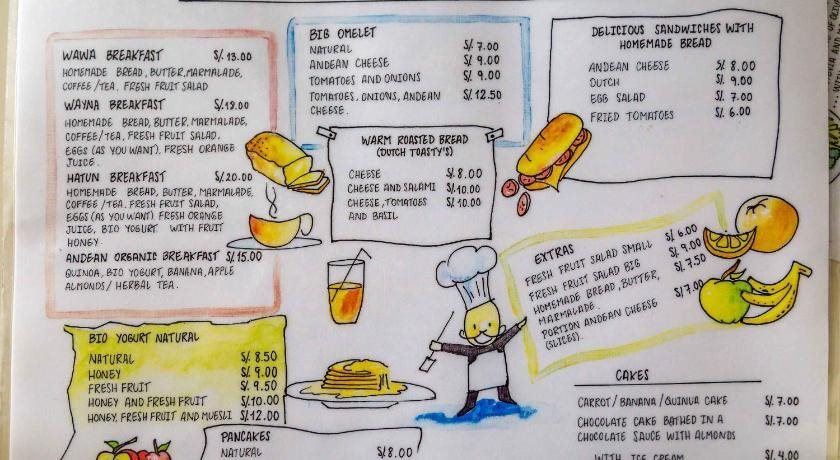 WAWA BREAKFAST S/.13.00
HOMEMADE BREAD, BUTTER, MARMALADE,
COFFEE / TEA. FRESH FRUIT SALAD
WAYNA BREAKFAST S/.18.00
HOMEMADE BREAD, BUTTER, MARMALADE,
COFFEE / TEA, FRESH FRUIT SALAD.
EGGS (AS YOU WANT). FRESH ORANGE
JUICE.
HATUN BREAKFAST S/.20.00
HOMEMADE BREAD, BUTTER, MARMALADE,
COFFEE / TEA. FRESH FRUIT SALAD,
EGGS (AS YOU WANT) FRESH ORANGE
JUICE, BIO YOGURT WITH FRUIT
HONEY
ANDEAN ORGANIC BREAKFAST S/.15.00
QUINOA, BIO YOGURT, BANANA, APPLE
ALMONDS / HERBAL TEA.
BIG OMELET
NATURAL S/. 7.00
ANDEAN CHEESE S/. 9.00
TOMATOES AND ONIONS S/. 9.00
TOMATOES, ONIONS, ANDEAN S/. 12.50
CHEESE.
DELICIOUS SANDWICHES WITH
HOMEMADE BREAD
ANDEAN CHEESE S/. 8.00
DUTCH S/. 9.00
EGG SALAD S/. 7.00
FRIED TOMATOES S/. 6.00
WARM ROASTED BREAD
(DUTCH TOASTY'S)
CHEESE S/.8.00
CHEESE AND SALAMI S/.10.00
CHEESE, TOMATOES S/.10.00
AND BASIL
EXTRAS
FRESH FRUIT SALAD SMALL S/. 6.00
FRESH FRUIT SALAD BIG S/. 9.00
HOMEMADE BREAD, BUTTER, S/.7.50
MARMALADE.
PORTION ANDEAN CHEESE S/.7.00
(SLICES).
BIO YOGURT NATURAL
NATURAL S/. 8.50
HONEY S/. 9.00
FRESH FRUIT S/. 9.50
HONEY AND FRESH FRUIT S/.10.00
HONEY, FRESH FRUIT AND MUESLI S/.12.00
PANCAKES
NATURAL S/8.00
CAKES
CARROT / BANANA / QUINUA CAKE S/. 7.00
CHOCOLATE CAKE BATHED IN A S/.7.00
CHOCOLATE SAUCE WITH ALMONDS
WITH ICE CREAM S/. 4.00